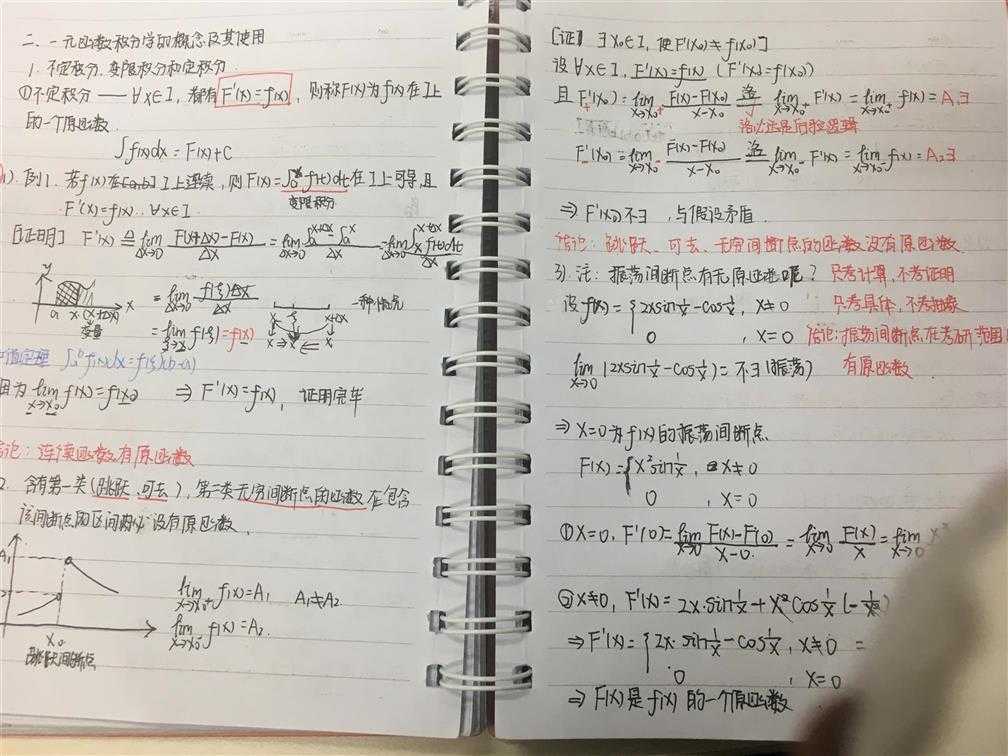 二、一元函数积分学的概念及其使用
1. 不定积分、变限积分和定积分
①不定积分 —— ∀x∈I, 都有 F'(x)=f(x), 则称F(x)为f(x)在I上
的一个原函数.
∫f(x)dx=F(x)+C
例1. 若f(x)在[a,b] I上连续, 则F(x)=∫ₐˣ f(t)dt在I上可导且
变限积分
F'(x)=f(x). ∀x∈I
[证明] F'(x) ≜ lim Δx→0 (F(x+Δx)-F(x))/Δx = lim Δx→0 (∫ₐˣ⁺ᐃˣ-∫ₐˣ)/Δx = lim Δx→0 (∫ₓˣ⁺ᐃˣ f(t)dt)/Δx
y
a x (x+Δx) x
变量
= lim Δx→0 f(ξ)Δx/Δx
x ξ x+Δx
= lim ξ→x f(ξ)=f(x)
x → x ⇐ x
值定理 ∫ₐᵇ f(x)dx=f(ξ)(b-a)
因为 lim x→x₀ f(x)=f(x₀) ⇒ F'(x)=f(x), 证明完毕
结论: 连续函数必有原函数
2. 含有第一类(跳跃、可去), 第二类无穷间断点的函数在包含
该间断点的区间内必没有原函数.
A₁
x₀
跳跃间断点
lim x→x₀⁺ f(x)=A₁ A₁≠A₂
lim x→x₀⁻ f(x)=A₂.
[证] ∃x₀∈I, 使F'(x₀)≠f(x₀)]
设 ∀x∈I, F'(x)=f(x) (F'(x₀)=f(x₀))
且 F'₊(x₀)=lim x→x₀⁺ (F(x)-F(x₀))/(x-x₀) 洛 lim x→x₀⁺ F'(x)=lim x→x₀⁺ f(x)=A₁∃
洛必达是后验逻辑
F'₋(x₀)=lim x→x₀⁻ (F(x)-F(x₀))/(x-x₀) 洛 lim x→x₀⁻ F'(x)=lim x→x₀⁻ f(x)=A₂∃
⇒ F'(x₀)不∃, 与假设矛盾.
结论: 跳跃、可去、无穷间断点的函数没有原函数
3). 注: 振荡间断点有无原函数呢? 只考计算, 不考证明
设 f(x)={2xsin1/x-cos1/x, x≠0 只考具体, 不考抽象
0 , x=0 结论: 振荡间断点在考研范围
lim x→0 (2xsin1/x-cos1/x)=不∃(振荡) 有原函数.
⇒ x=0为f(x)的振荡间断点
F(x)={x²sin1/x, x≠0
0 , x=0
①x=0, F'(0)=lim x→0 (F(x)-F(0))/(x-0)=lim x→0 F(x)/x=lim x→0 x²
②x≠0, F'(x)=2x.sin1/x+x²cos1/x(-1/x²)
⇒ F'(x)={2x·sin1/x-cos1/x, x≠0 =
0 , x=0
⇒ F(x)是f(x)的一个原函数